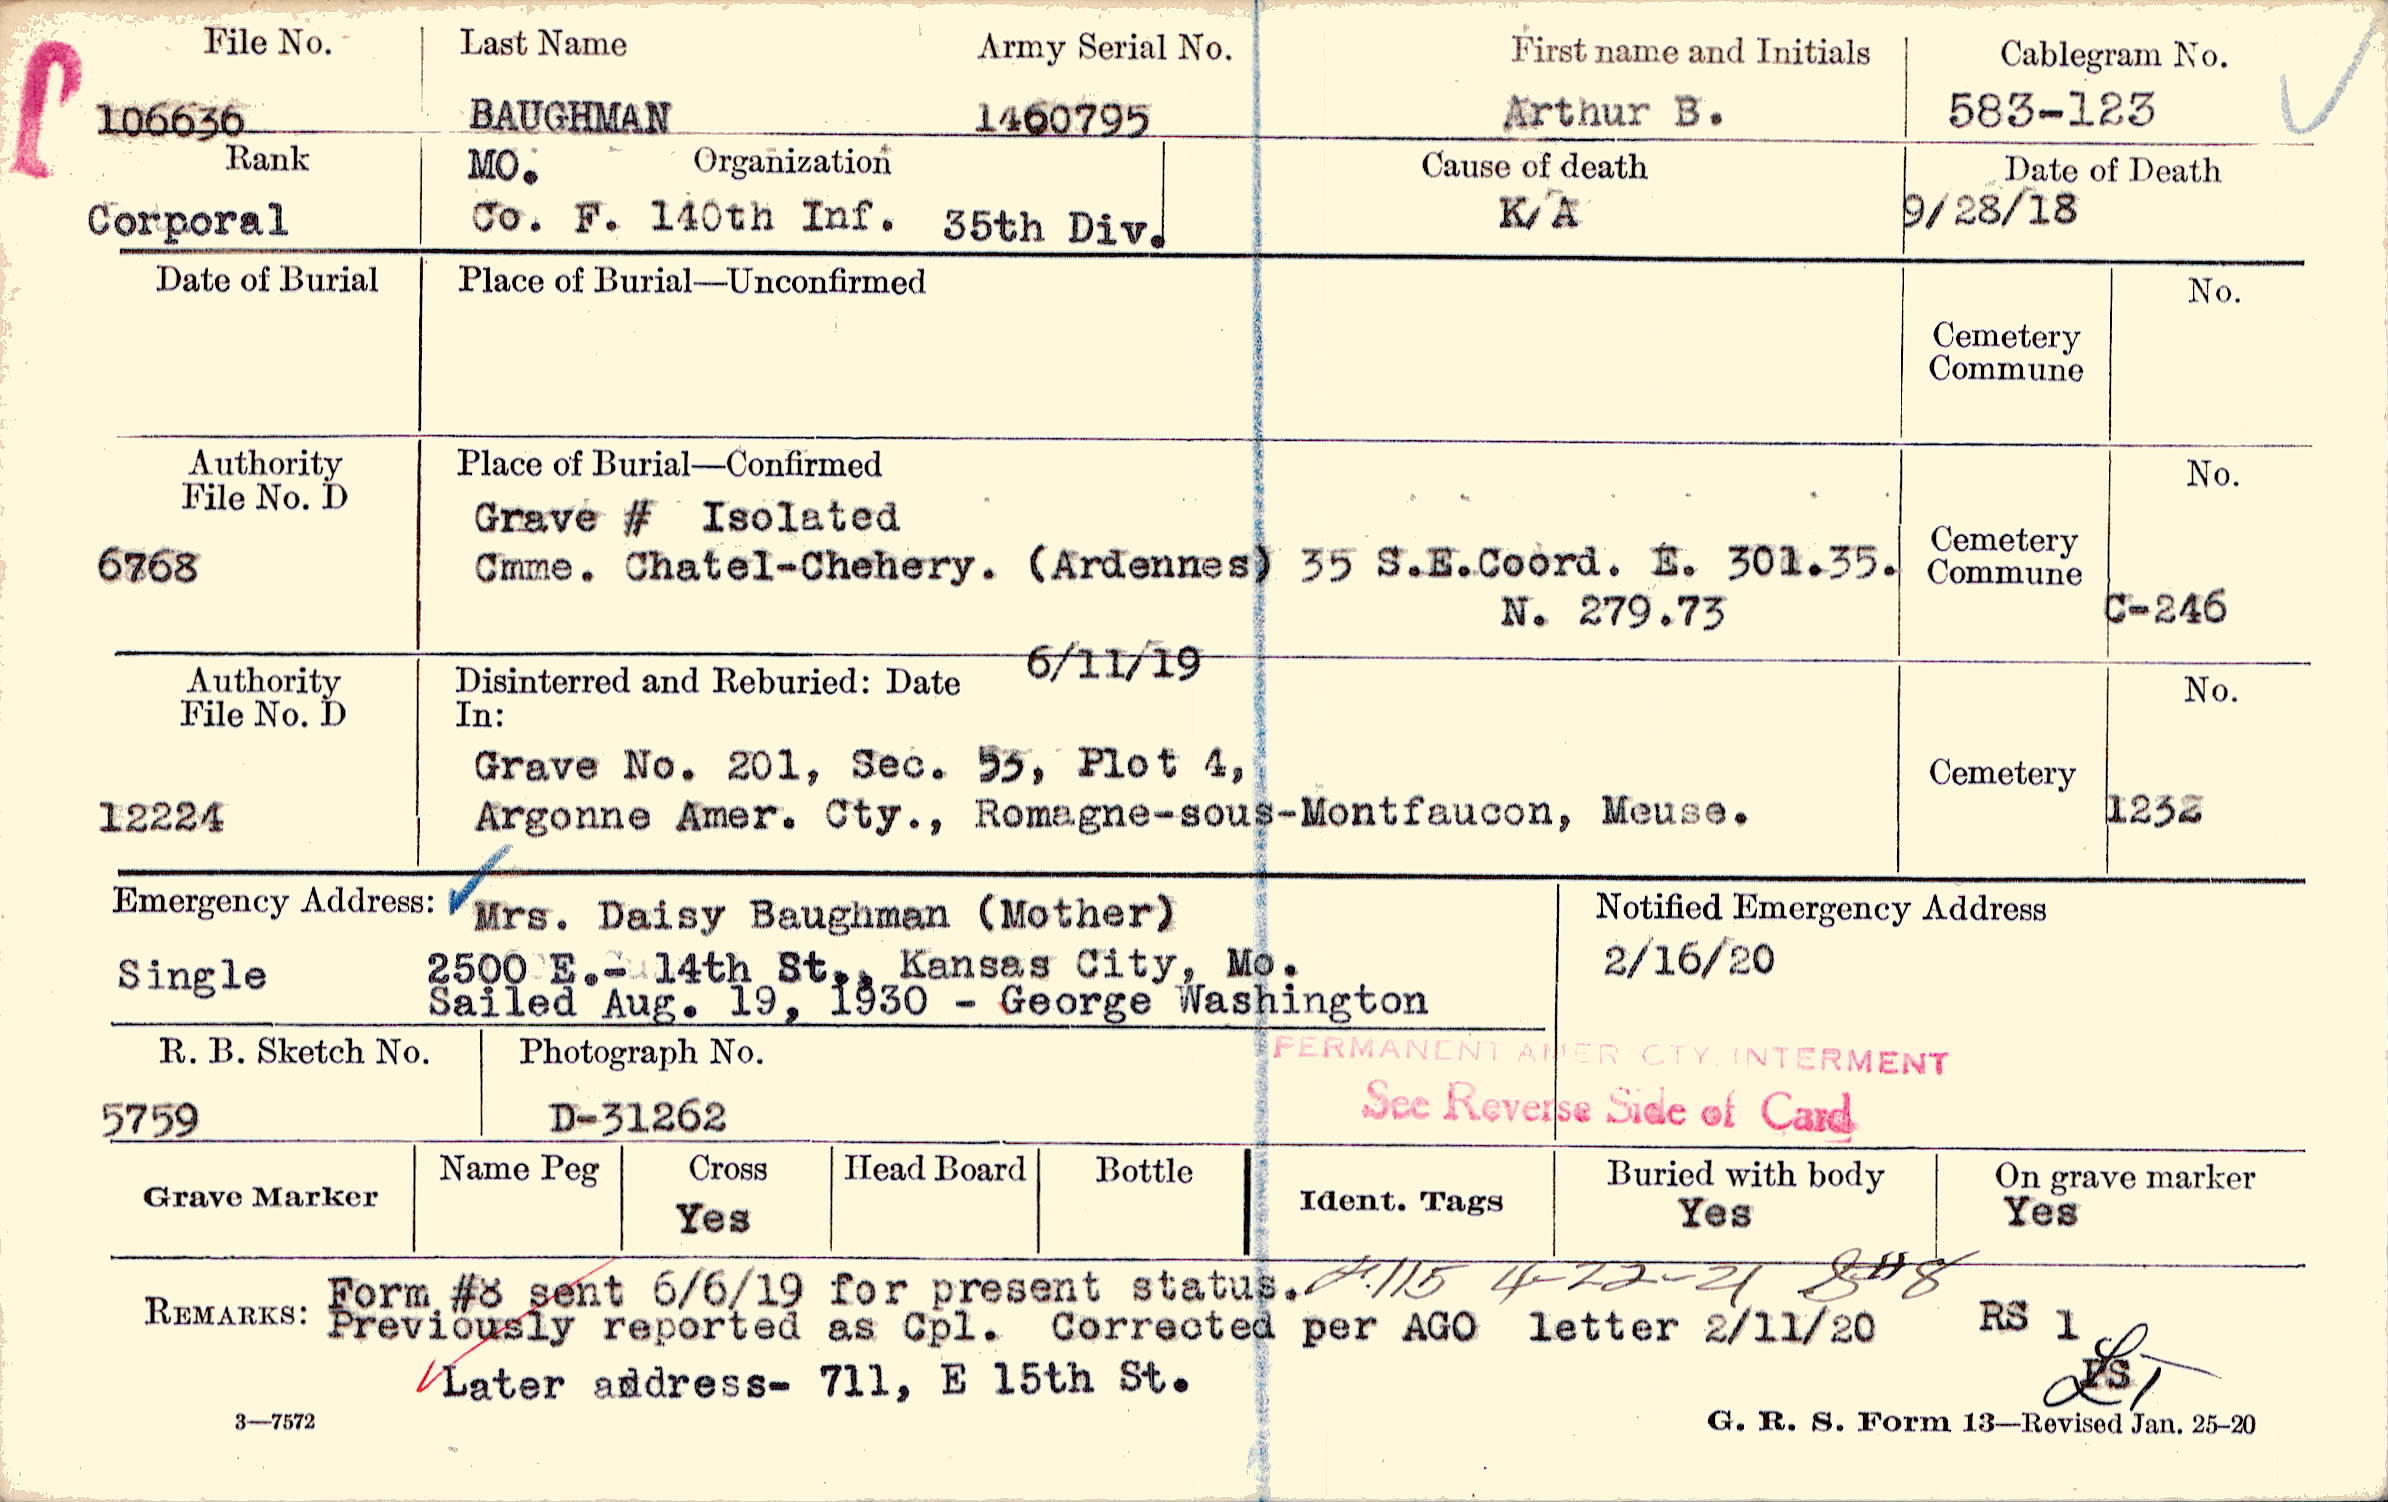 File No. Last Name Army Serial No. First name and Initials Cablegram No.
106636 BAUGHMAN 1460795 Arthur B. 583-123
Rank MO. Organization Cause of death Date of Death
Corporal Co. F. 140th Inf. 35th Div. K/A 9/28/18
Date of Burial Place of Burial—Unconfirmed No.
Cemetery
Commune
Authority Place of Burial—Confirmed No.
File No. D
Grave # Isolated
6768 Cmme. Chatel-Chehery. (Ardennes) 35 S.E.Coord. E. 301.35. Cemetery
Commune
N. 279.73 C-246
Authority Disinterred and Reburied: Date 6/11/19 No.
File No. D In:
Grave No. 201, Sec. 53, Plot 4, Cemetery
12224 Argonne Amer. Cty., Romagne-sous-Montfaucon, Meuse. 1232
Emergency Address: Mrs. Daisy Baughman (Mother) Notified Emergency Address
Single 2500 E.- 14th St., Kansas City, Mo. 2/16/20
Sailed Aug. 19, 1930 - George Washington
R. B. Sketch No. Photograph No. PERMANENT AMER CTY. INTERMENT
5759 D-31262 See Reverse Side of Card
Grave Marker Name Peg Cross Head Board Bottle Ident. Tags Buried with body On grave marker
Yes Yes Yes
REMARKS: Form #8 sent 6/6/19 for present status. 115 4-22-21
Previously reported as Cpl. Corrected per AGO letter 2/11/20 RS 1
Later address- 711, E 15th St.
3—7572 G. R. S. Form 13—Revised Jan. 25-20